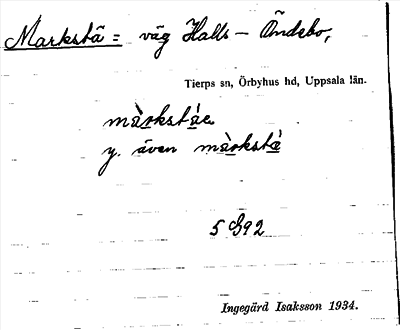 Markstä = väg Halls – Åndebo,
Tierps sn, Örbyhus hd, Uppsala län.
màrkstáe
y. även màrkstá
5 G92
Ingegärd Isaksson 1934.